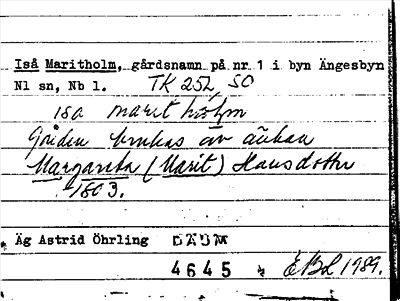 Iså Maritholm, gårdsnamn på nr 1 i byn Ängesbyn
Nl sn, Nb l. TK 25L, SO
isa marit hòḷm
Gården brukas av änkan
Margareta (Marit) Hansdotter
1803.
Äg Astrid Öhrling DAUM
4645 EBL 1989.